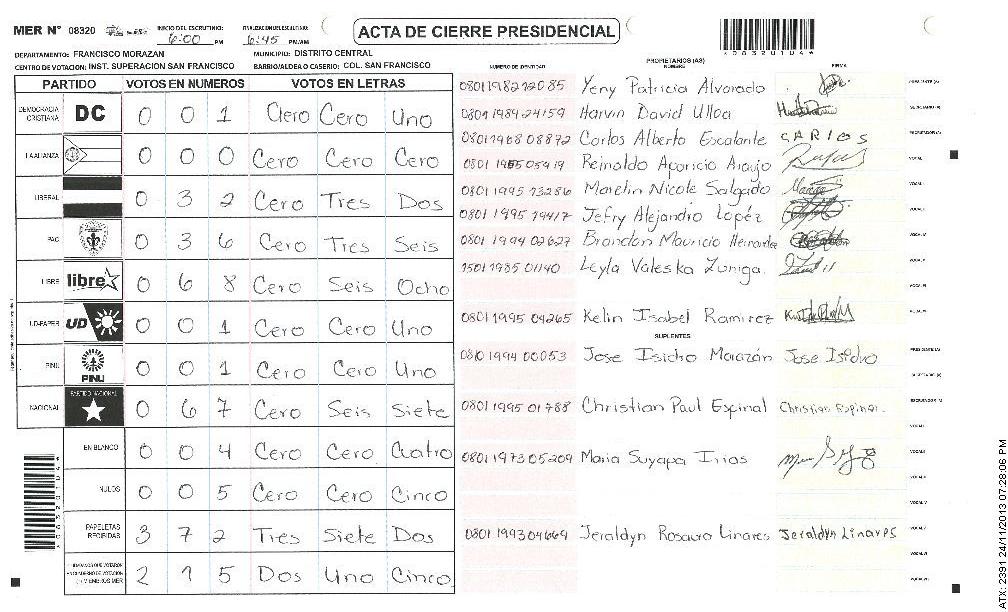 MER N° 08320 INICIO DEL ESCRUTINIO: 6:00 PM FINALIZACION DEL ESCRUTINIO: 6:45 PM/AM
ACTA DE CIERRE PRESIDENCIAL
DEPARTAMENTO: FRANCISCO MORAZAN MUNICIPIO: DISTRITO CENTRAL
CENTRO DE VOTACION: INST. SUPERACION SAN FRANCISCO BARRIO/ALDEA O CASERIO: COL. SAN FRANCISCO
PARTIDO VOTOS EN NUMEROS VOTOS EN LETRAS
DEMOCRACIA CRISTIANA DC 0 0 1 Cero Cero Uno
LA ALIANZA 0 0 0 Cero Cero Cero
LIBERAL 0 3 2 Cero Tres Dos
PAC 0 3 6 Cero Tres Seis
LIBRE libre 0 6 8 Cero Seis Ocho
UD-FAPER UD 0 0 1 Cero Cero Uno
PINU PINU 0 0 1 Cero Cero Uno
NACIONAL PARTIDO NACIONAL 0 6 7 Cero Seis Siete
EN BLANCO 0 0 4 Cero Cero Cuatro
NULOS 0 0 5 Cero Cero Cinco
PAPELETAS RECIBIDAS 3 7 2 Tres Siete Dos
CIUDADANOS QUE VOTARON EN CUADERNO DE VOTACION (+) MIEMBROS MER 2 1 5 Dos Uno Cinco
PROPIETARIOS (AS)
NUMERO DE IDENTIDAD NOMBRE FIRMA
0801198212085 Yeny Patricia Alvarado PRESIDENTE (A)
0801198924159 Harvin David Ulloa SECRETARIO (A)
0801196808872 Carlos Alberto Escalante CARLOS ESCRUTADOR (A)
Reinaldo Aparicio Araujo VOCAL I
0801199513286 Marelin Nicole Salgado
0801199519417 Jefry Alejandro Lopéz
0801199402627 Brandon Mauricio Hernandez
1501198501140 Leyla Valeska Zuniga
0801199504265 Kelin Isabel Ramirez
SUPLENTES
0801199400053 Jose Isidro Morazán Jose Isidro PRESIDENTE (A)
SECRETARIO (A)
0801199501788 Christian Paul Espinal Christian Espinal ESCRUTADOR (A)
0801197305209 Maria Suyapa Irias
0801199304669 Jeraldyn Rosaura Linares Jeraldyn Linares
ATX: 2391 24/11/2013 07:28:06 PM